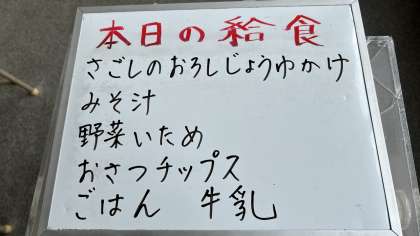 本日の給食
さごしのおろしじょうゆかけ
みそ汁
野菜いため
おさつチップス
ごはん 牛乳